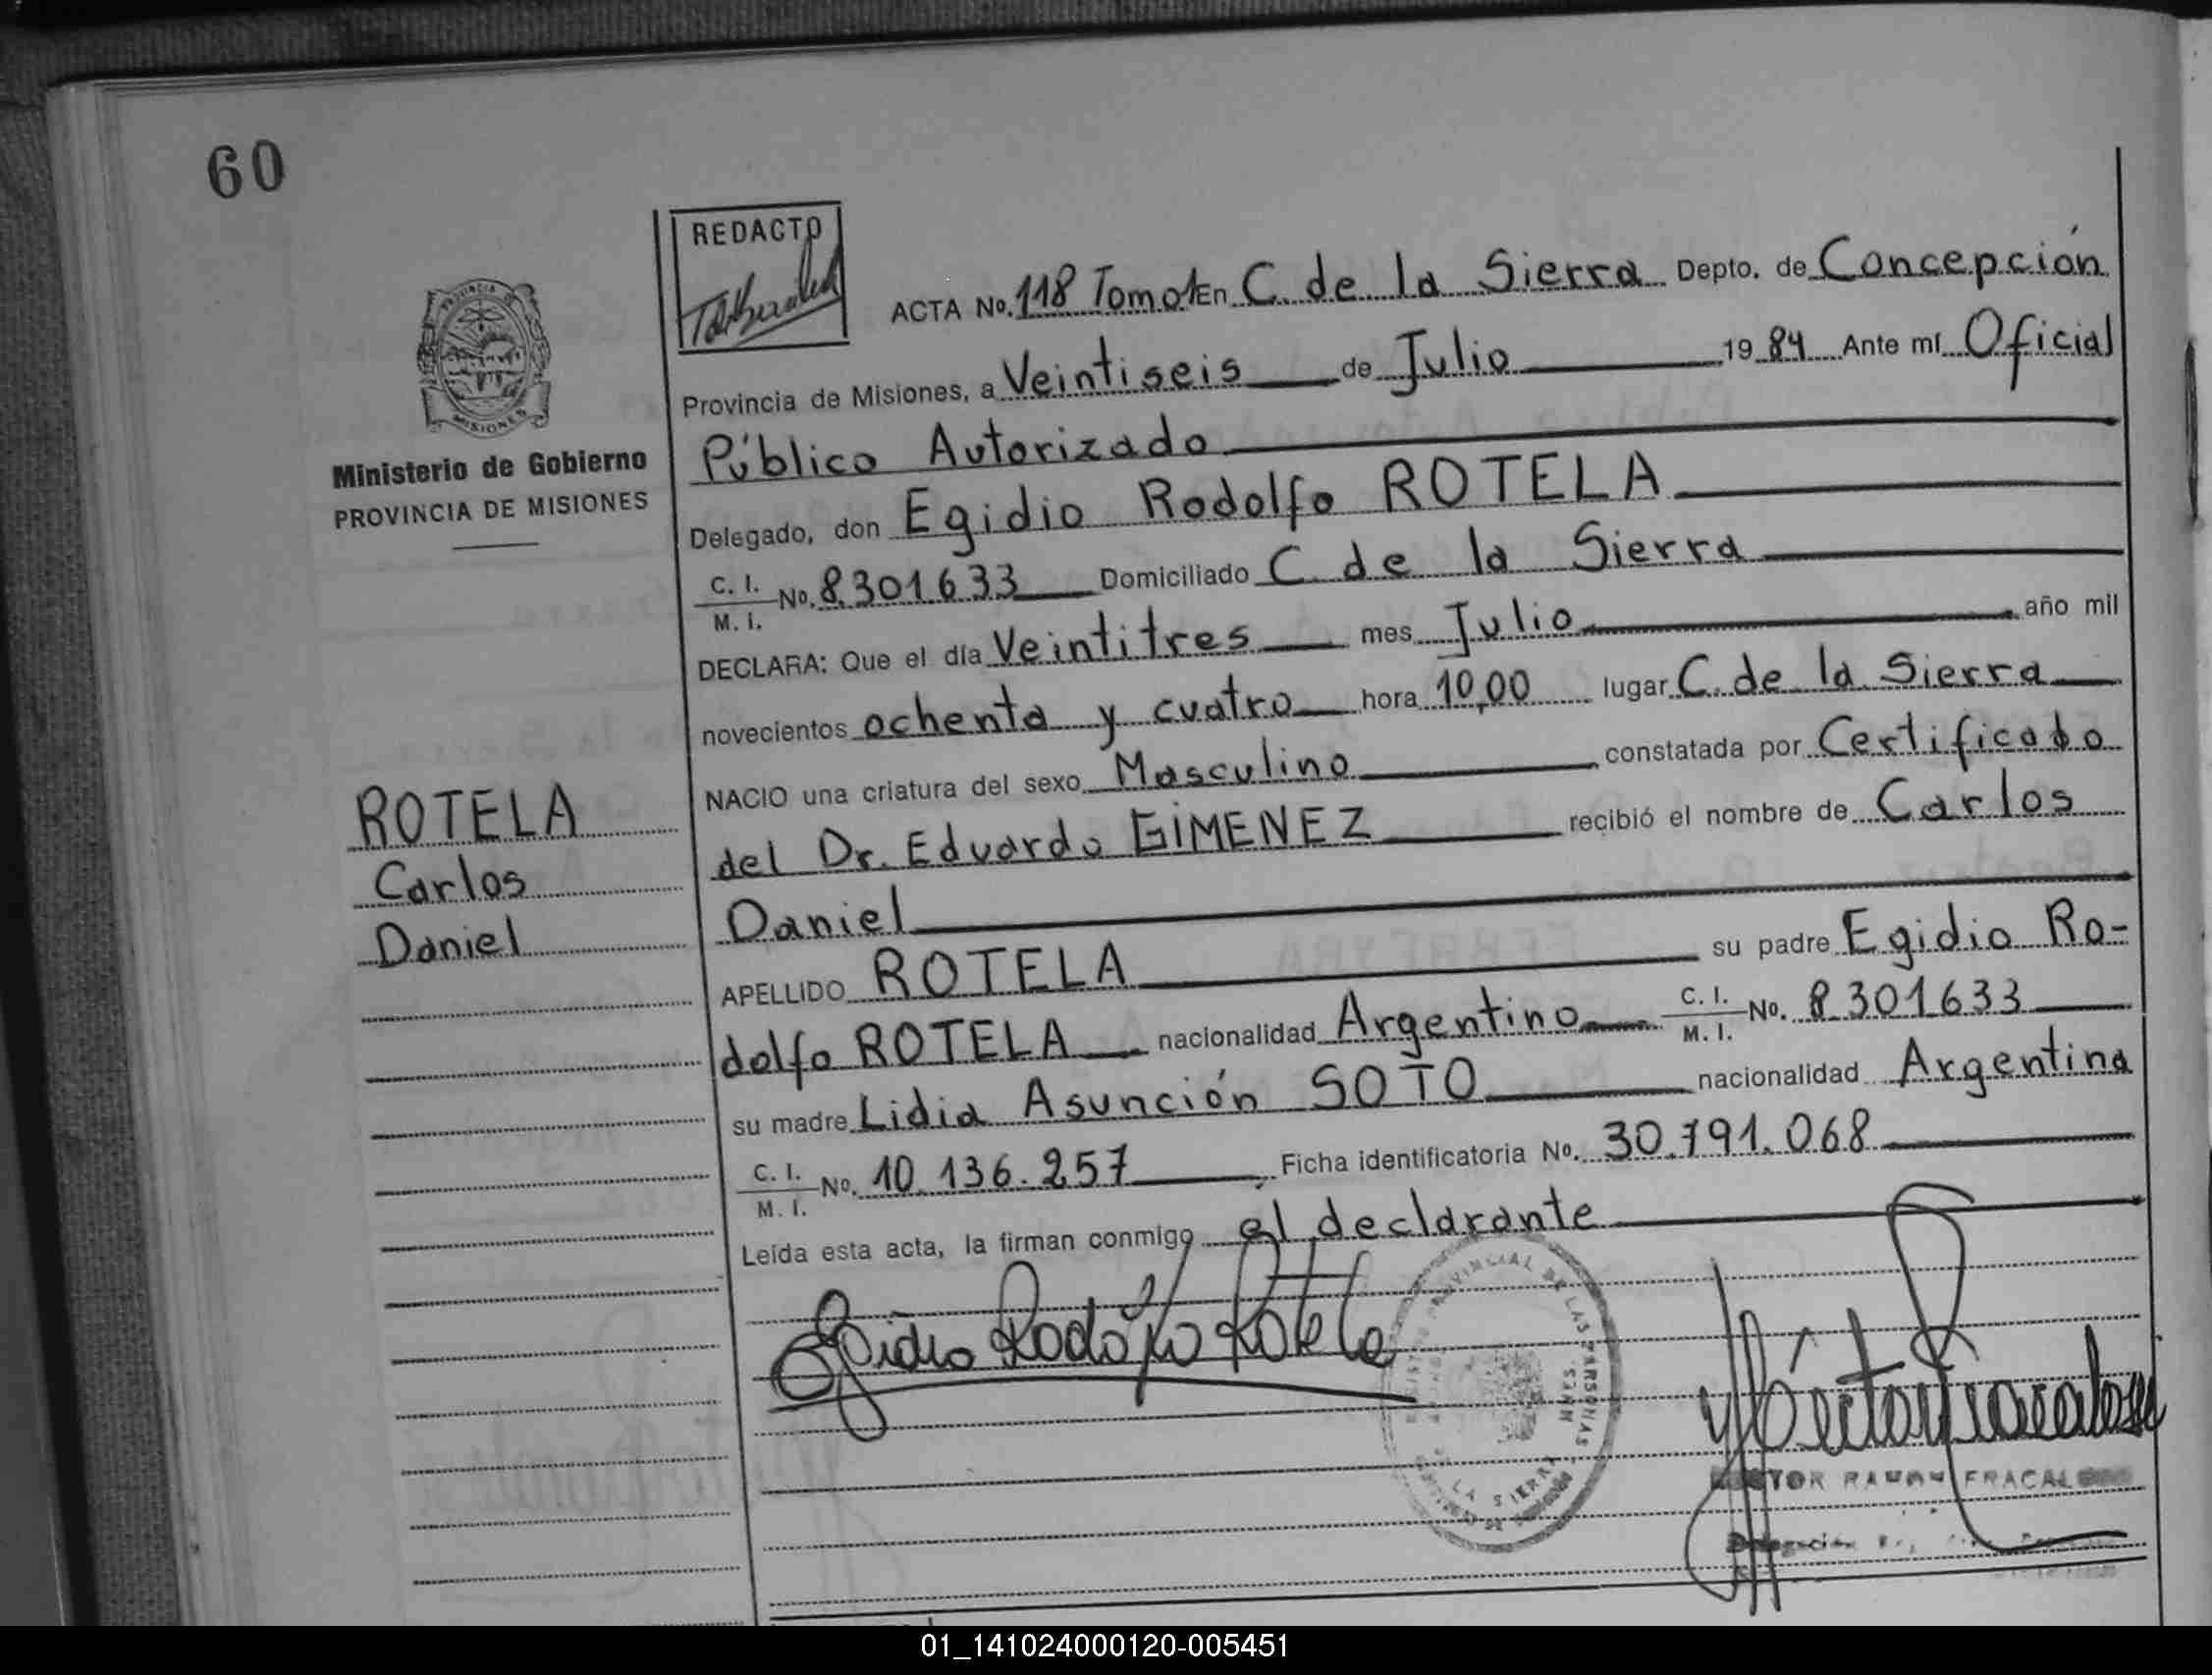 60
REDACTO
ACTA No. 118 Tomo 1 En C. de la Sierra Depto. de Concepción
Provincia de Misiones, a Veintiseis de Julio 19 84 Ante mí Oficial
Público Autorizado
Delegado, don Egidio Rodolfo ROTELA
C. I. No. 8.301633 Domiciliado C. de la Sierra
M. I.
DECLARA: Que el día Veintitres mes Julio año mil
novecientos ochenta y cuatro hora 10,00 lugar C. de la Sierra
NACIO una criatura del sexo Masculino constatada por Certificado
del Dr. Eduardo GIMENEZ recibió el nombre de Carlos
Daniel
APELLIDO ROTELA su padre Egidio Ro-
dolfo ROTELA nacionalidad Argentino C. I. No. 8.301633
M. I.
su madre Lidia Asunción SOTO nacionalidad Argentina
C. I. No. 10.136.257 Ficha identificatoria No. 30.791.068
M. I.
Leída esta acta, la firman conmigo el declarante
Egidio Rodolfo Rotela
PROVINCIA DE
MISIONES
Ministerio de Gobierno
PROVINCIA DE MISIONES
ROTELA
Carlos
Daniel
PROVINCIAL DE LAS PERSONAS
LA SIERRA
RAMON FRACAL
01_141024000120-005451